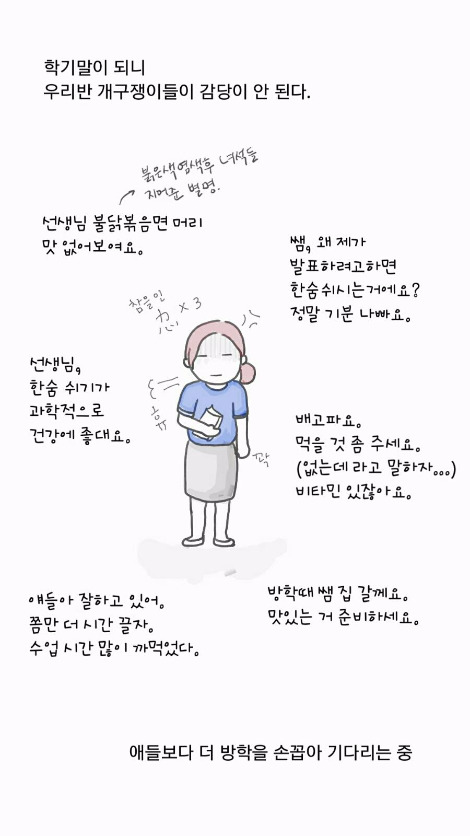 학기말이 되니
우리반 개구쟁이들이 감당이 안 된다.
붉은색 염색후 녀석들
지어준 별명.
선생님 불닭볶음면 머리
맛 없어보여요.
쌤, 왜 제가
발표하려고하면
한숨쉬시는거에요?
정말 기분 나빠요.
참을인
忍 × 3
선생님,
한숨 쉬기가
과학적으로
건강에 좋대요.
휴
꽉
배고파요.
먹을 것 좀 주세요.
(없는데 라고 말하자...)
비타민 있잖아요.
얘들아 잘하고 있어.
쫌만 더 시간 끌자.
수업 시간 많이 까먹었다.
방학때 쌤 집 갈께요.
맛있는 거 준비하세요.
애들보다 더 방학을 손꼽아 기다리는 중